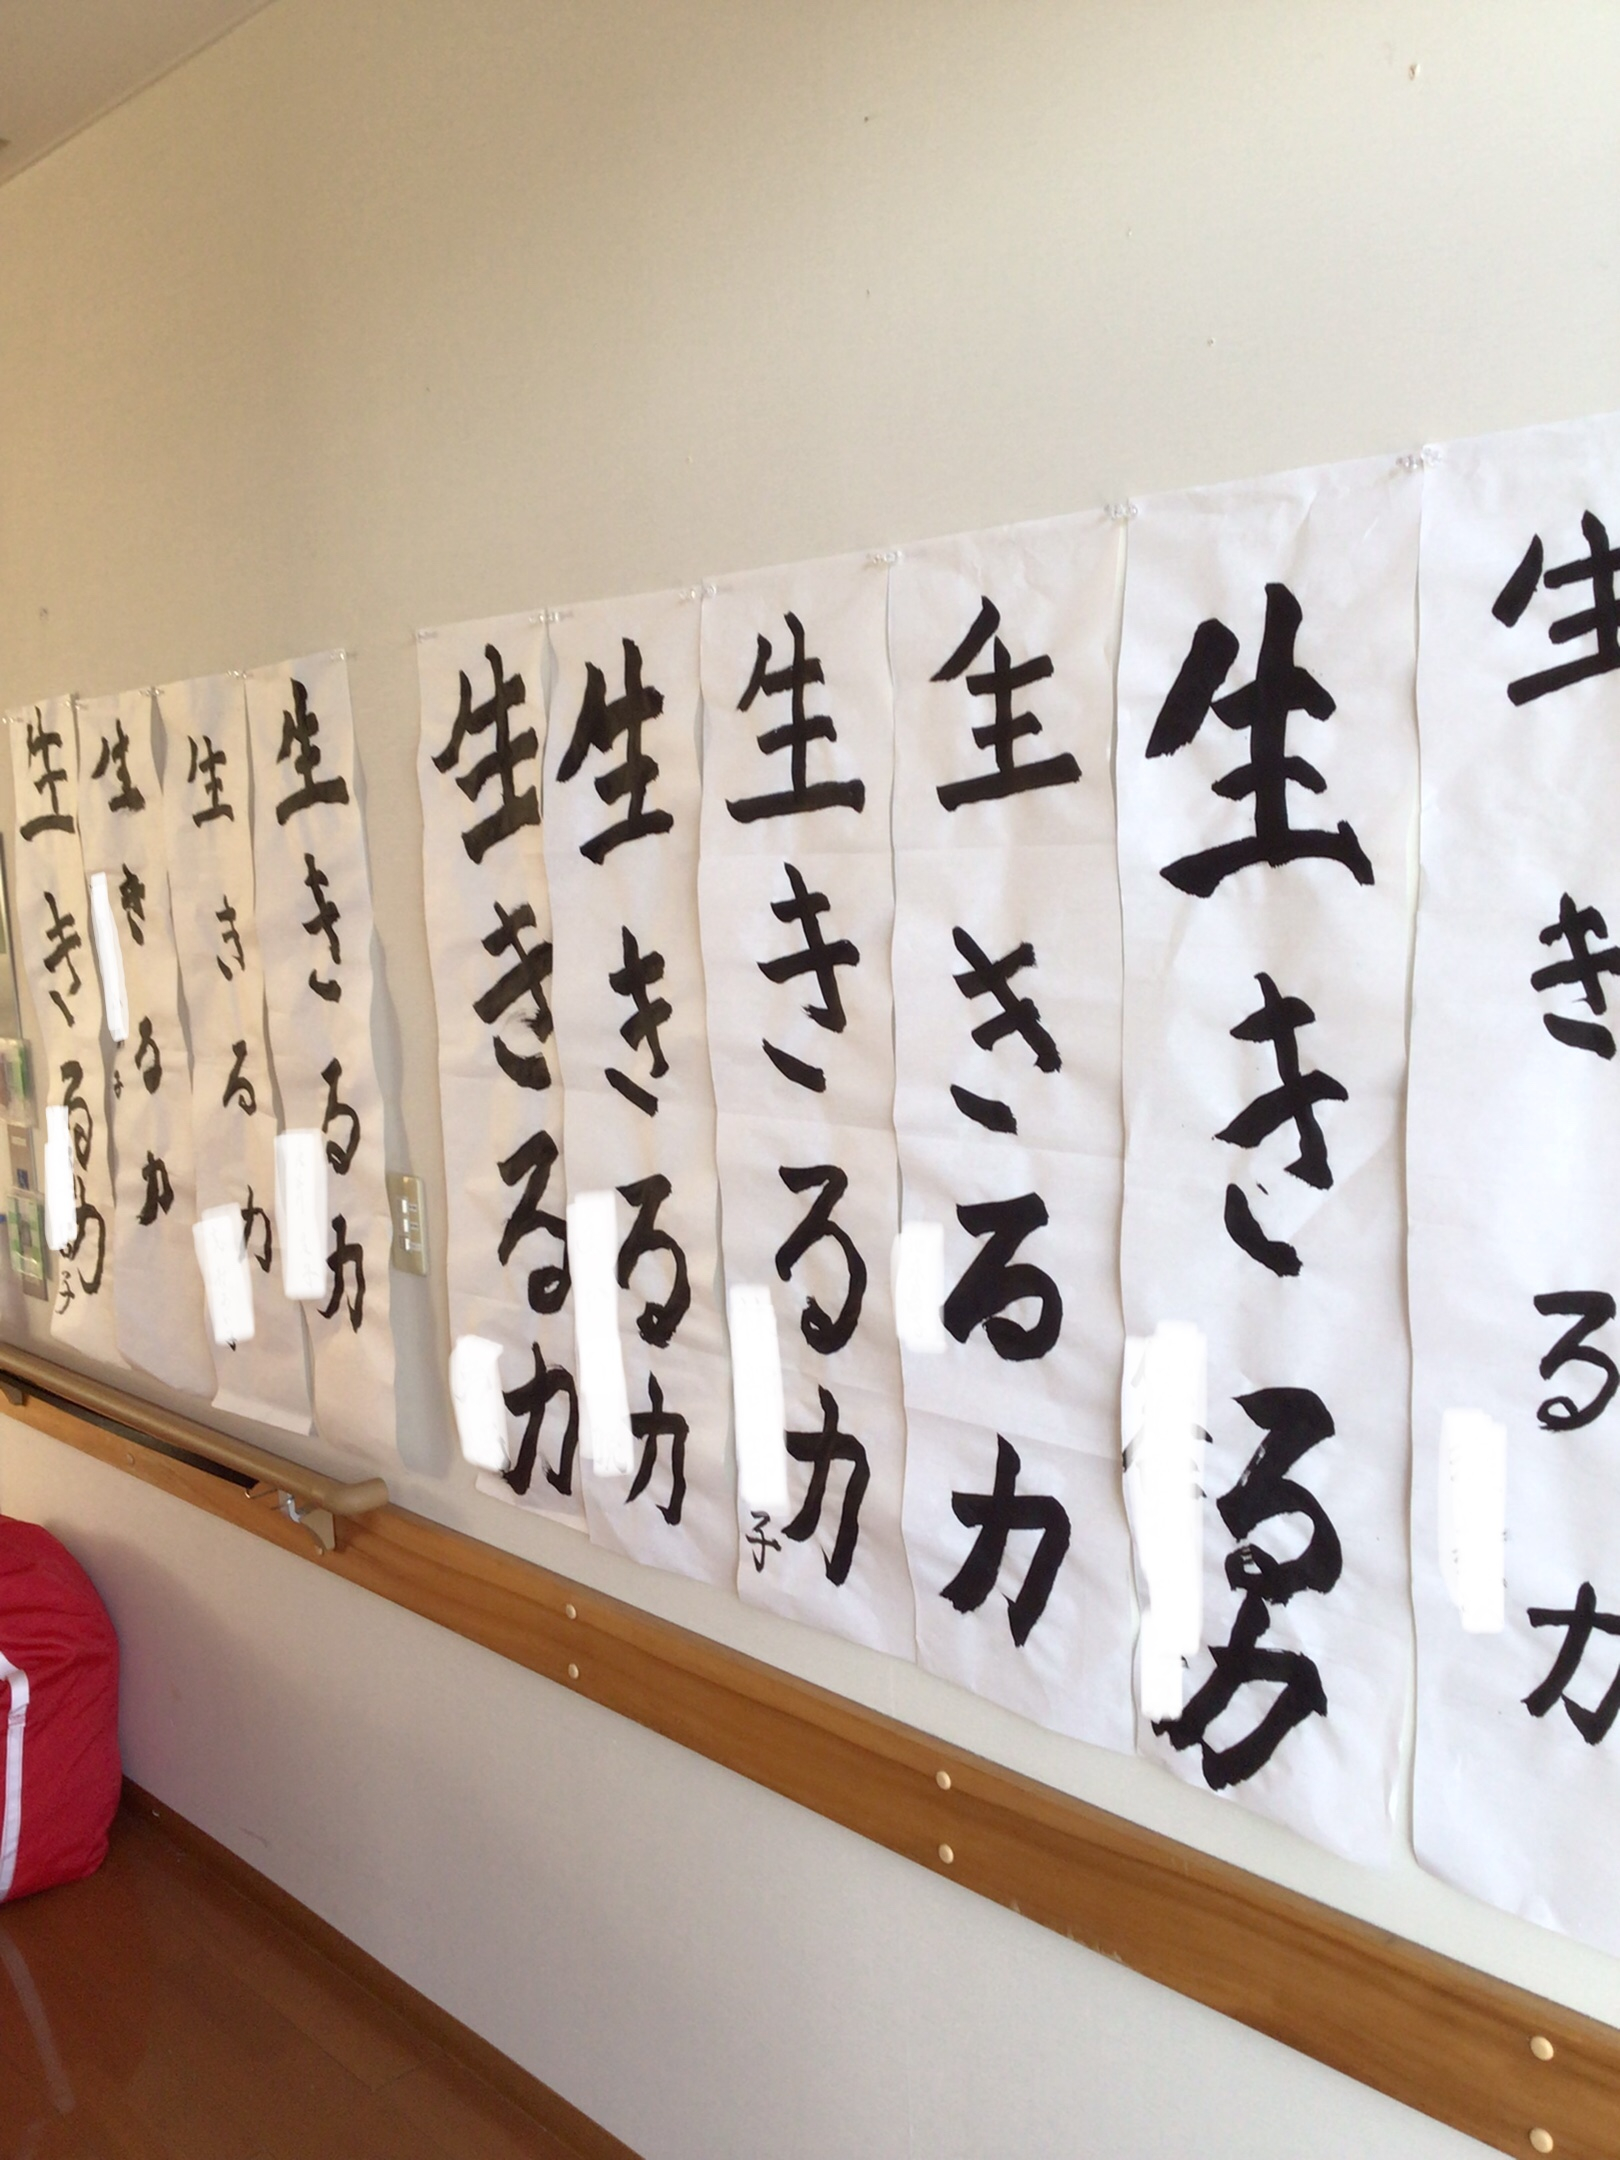 生きる力
生きる力
生きる力
生きる力
子
生きる力
生きる力
生きる力
生きる力
生きる力
子
生きる力
子